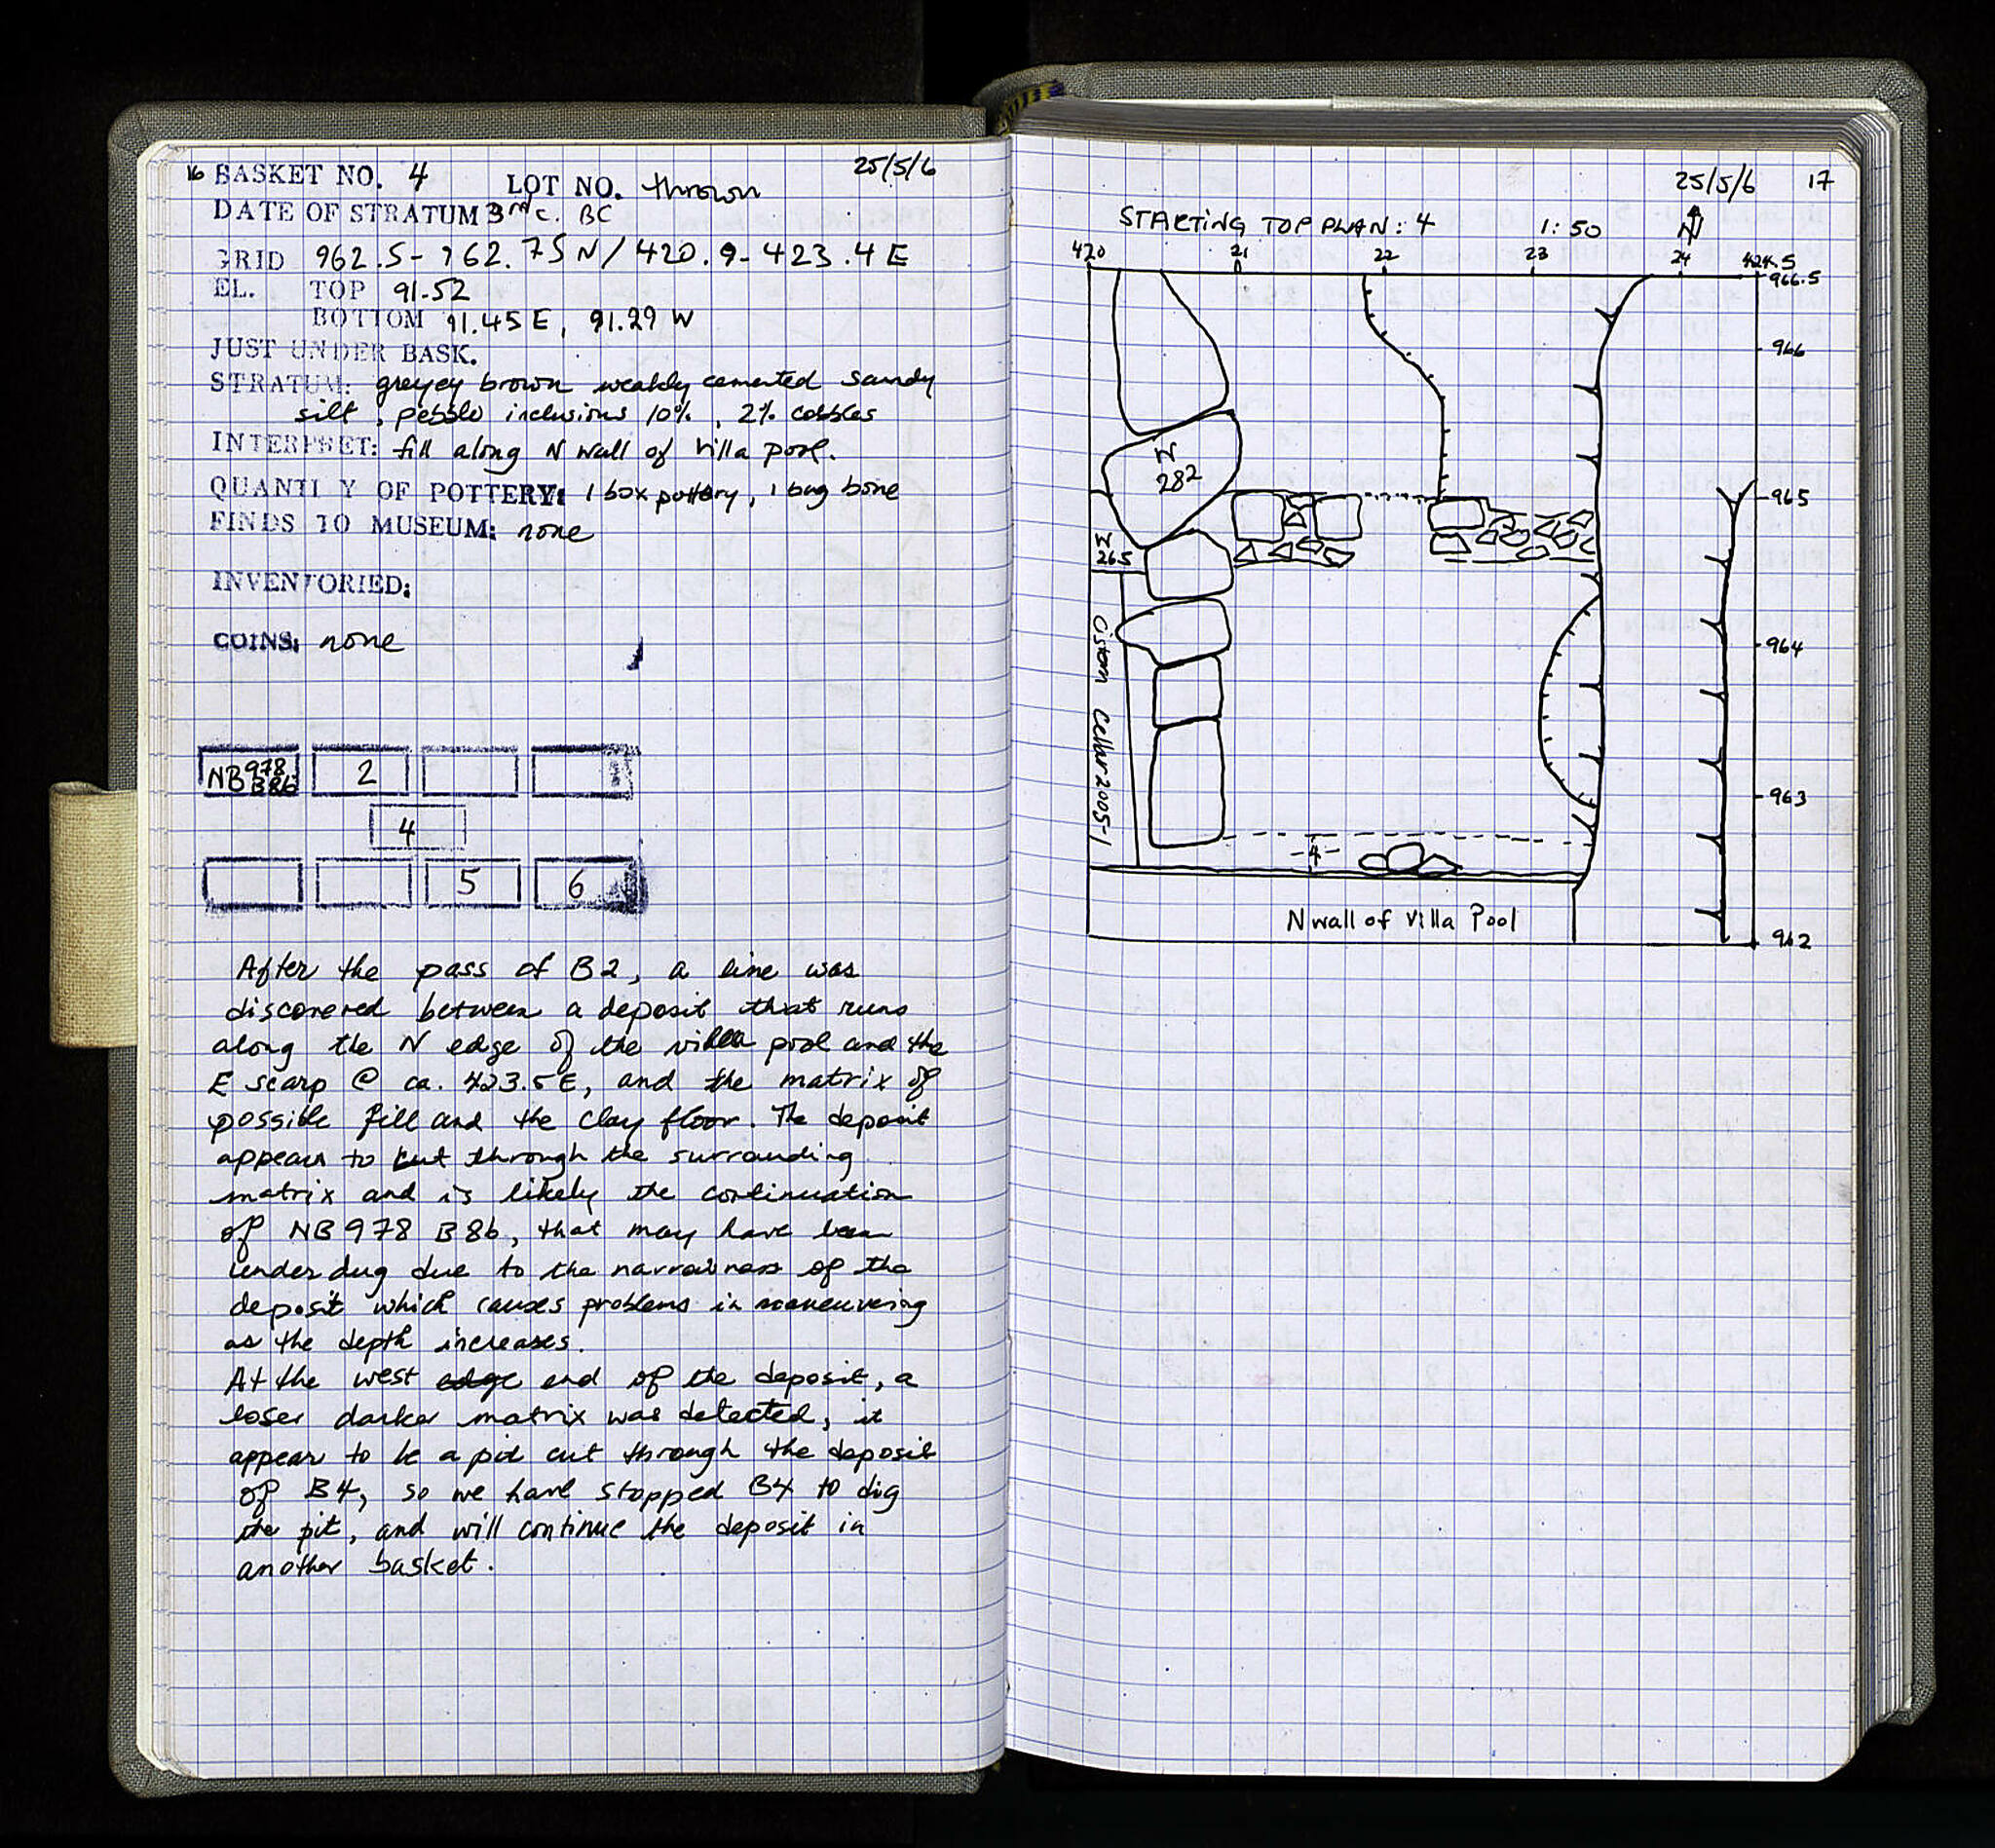 16 BASKET NO. 4 LOT NO. thrown 25/5/6
DATE OF STRATUM 3rd c. BC
GRID 962.5 - 962.75 N / 420.9 - 423.4 E
EL. TOP 91.52
BOTTOM 91.45 E, 91.29 W
JUST UNDER BASK.
STRATUM: greyey brown weakly cemented sandy
silt, pebble inclusions 10%, 2% cobbles
INTERPRET: fill along N wall of Villa pool.
QUANTI Y OF POTTERY: 1 box pottery, 1 bag bone
FINDS TO MUSEUM: none
INVENTORIED:
COINS: none
NB 978 B86 2
4
5 6
After the pass of B2, a line was
discovered between a deposit that runs
along the N edge of the villa pool and the
E scarp @ ca. 423.5E, and the matrix of
possible fill and the clay floor. The deposit
appears to cut through the surrounding
matrix and is likely the continuation
of NB 978 B86, that may have been
under dug due to the narrowness of the
deposit which causes problems in maneuvering
as the depth increases.
At the west edge end of the deposit, a
loser darker matrix was detected, it
appear to be a pit cut through the deposit
of B4, so we have stopped B4 to dig
the pit, and will continue the deposit in
another basket.
25/5/6 17
STARTING TOP PLAN: 4 1:50 N
420 21 22 23 24 424.5
966.5
966
W
282
965
W
265
964
Cistern Cellar 2005-1
963
-4-
N wall of Villa Pool
962